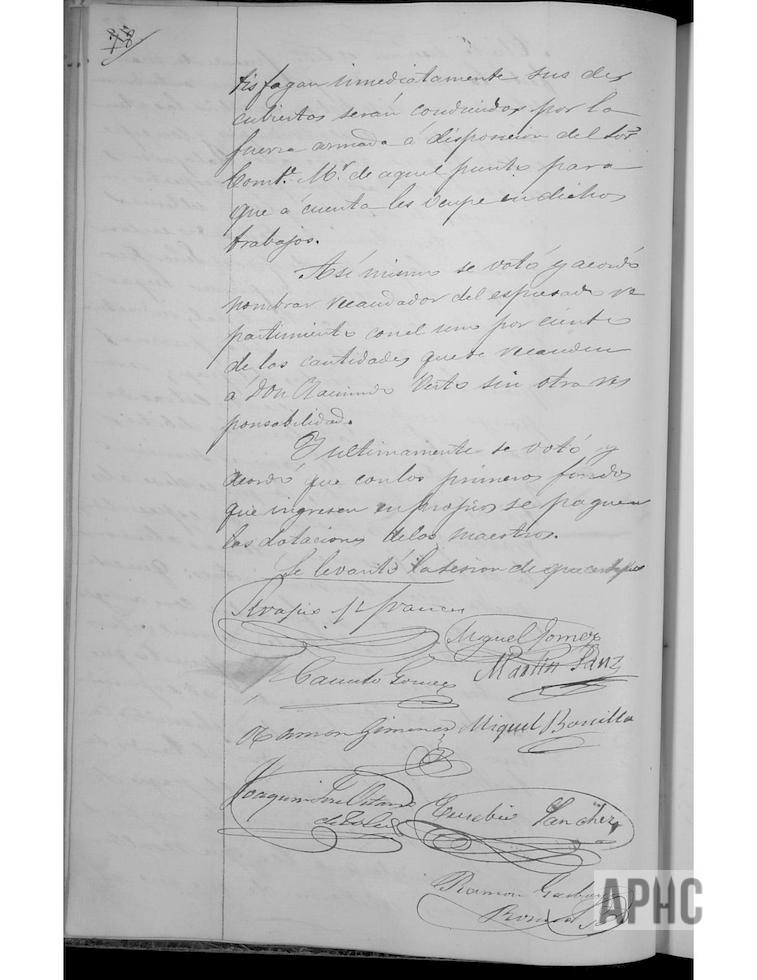 tisfagan inmediatamente sus des
cubiertos serán conducidos por la
fuerza armada á disposicion del Sor
Comte. Mr. de aquel punto para
que á cuenta les ocupe en dichos
trabajos.
Asi mismo se votó y acordó
nombrar recaudador del espresado re
partimiento con el uno por ciento
de las cantidades que se recauden
á Don Raimundo sin otra res
ponsabilidad.
Y ultimamente se votó y
acordó que con los primeros fondos
que ingresen en propios se paguen
las dotaciones de los maestros.
Se levantó la sesion de que certifico
Miguel Gomez
Martin Sanz
Gomez
Ramon Gimenez Miguel Bonilla
Joaquin José
Eusebio Sanchez
Ramon
APHC